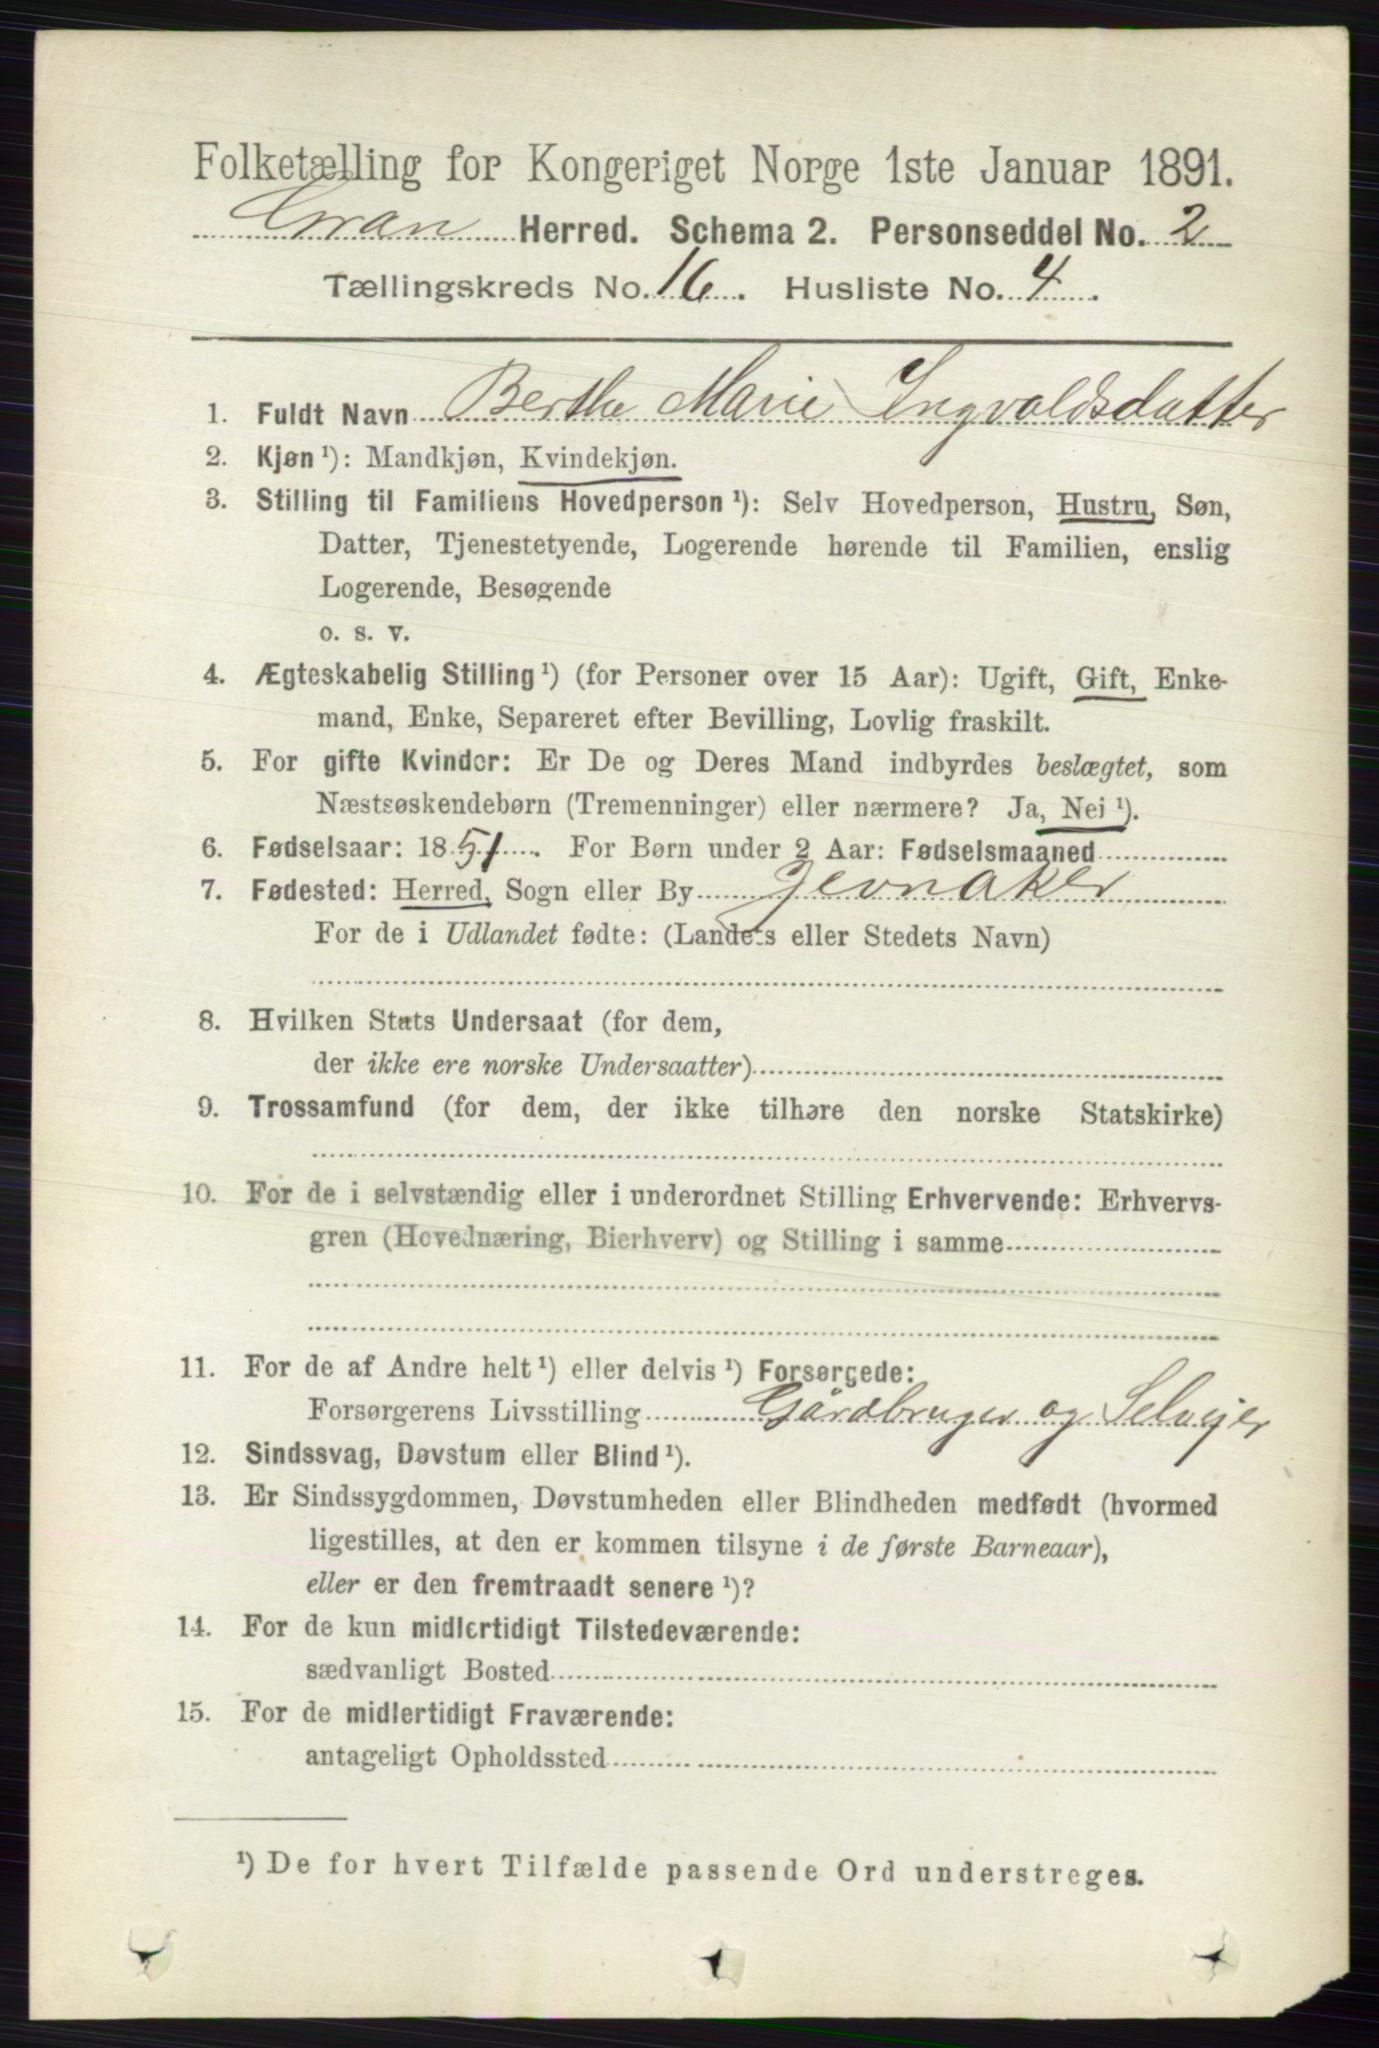 Folketælling for Kongeriget Norge 1ste Januar 1891.
Gran Herred. Schema 2. Personseddel No. 2
Tællingskreds No. 16. Husliste No. 4.
1. Fuldt Navn Berthe Marie Ingvoldsdatter
2. Kjøn ¹): Mandkjøn, Kvindekjøn.
3. Stilling til Familiens Hovedperson ¹): Selv Hovedperson, Hustru, Søn,
Datter, Tjenestetyende, Logerende hørende til Familien, enslig
Logerende, Besøgende
o. s. v.
4. Ægteskabelig Stilling ¹) (for Personer over 15 Aar): Ugift, Gift, Enke-
mand, Enke, Separeret efter Bevilling, Lovlig fraskilt.
5. For gifte Kvinder: Er De og Deres Mand indbyrdes beslægtet, som
Næstsøskendebørn (Tremenninger) eller nærmere? Ja, Nei ¹).
6. Fødselsaar: 1851. For Børn under 2 Aar: Fødselsmaaned
7. Fødested: Herred, Sogn eller By Jevnaker
For de i Udlandet fødte: (Landets eller Stedets Navn)
8. Hvilken Stats Undersaat (for dem,
der ikke ere norske Undersaatter)
9. Trossamfund (for dem, der ikke tilhøre den norske Statskirke)
10. For de i selvstændig eller i underordnet Stilling Erhvervende: Erhvervs-
gren (Hovednæring, Bierhverv) og Stilling i samme
11. For de af Andre helt ¹) eller delvis ¹) Forsørgede:
Forsørgerens Livsstilling Gårdbruger og Selvejer
12. Sindssvag, Døvstum eller Blind ¹).
13. Er Sindssygdommen, Døvstumheden eller Blindheden medfødt (hvormed
ligestilles, at den er kommen tilsyne i de første Barneaar),
eller er den fremtraadt senere ¹)?
14. For de kun midlertidigt Tilstedeværende:
sædvanligt Bosted
15. For de midlertidigt Fraværende:
antageligt Opholdssted
¹) De for hvert Tilfælde passende Ord understreges.